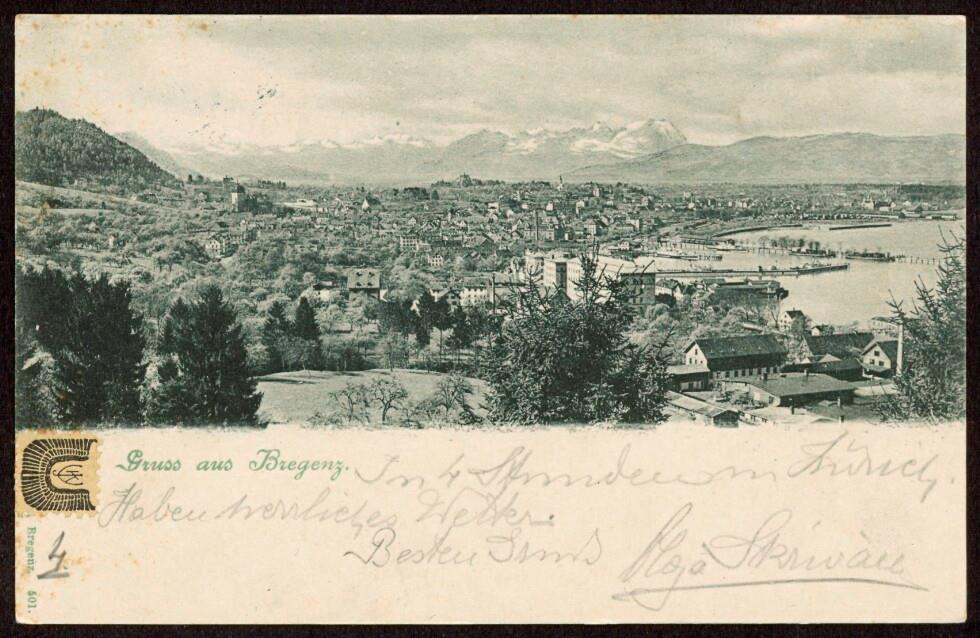 Gruss aus Bregenz.
In 4 Stunden in Zürich.
Haben herrliches Wetter.
Besten Gruß Olga Skriwan
Bregenz. 501.
4.